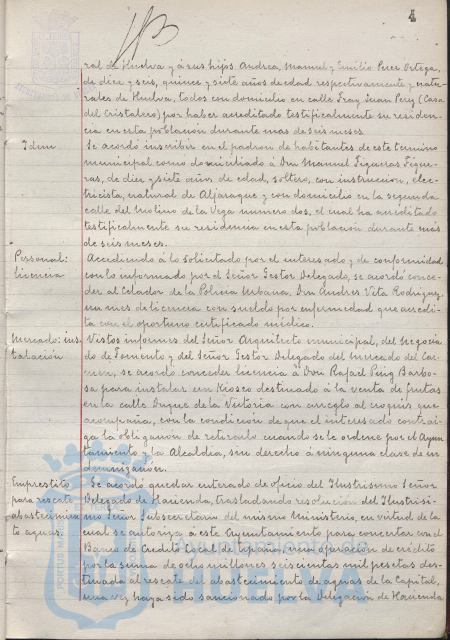 4
ral de Huelva y á sus hijos Andrea, Manuel y Emilio Perez Ortega,
de diez y seis, quince y siete años de edad respectivamente y natu-
rales de Huelva, todos con domicilio en calle Fray Juan Perez (Casa
del Cristalero) por haber acreditado testificalmente su residen-
cia en esta población durante mas de seis meses.
Idem
Se acordó inscribir en el padrón de habitantes de este término
municipal como domiciliado á Don Manuel Figueras Figue-
ras, de diez y siete años de edad, soltero, con instruccion, elec-
tricista, natural de Aljaraque y con domicilio en la segunda
calle del Molino de la Vega numero dos, el cual ha acreditado
testificalmente su residencia en esta población durante más
de seis meses.
Personal:
licencia
Accediendo á lo solicitado por el interesado y de conformidad
con lo informado por el Señor Gestor Delegado, se acordó conce-
der al Celador de la Policia Urbana, Don Andres Vita Rodriguez,
un mes de licencia con sueldo por enfermedad que acredi-
ta con el oportuno certificado médico.
Mercado: ins-
talación
Vistos informes del Señor Arquitecto municipal, del Negocia-
do de Fomento y del Señor Gestor Delegado del Mercado del Car-
men, se acordó conceder licencia á Don Rafael Puig Barbo-
sa para instalar un Kiosco destinado á la venta de frutas
en la calle Duque de la Victoria con arreglo al croquis que
acompaña, con la condición de que el interesado contrai-
ga la obligacion de retirarlo cuando se le ordene por el Ayun-
tamiento y la Alcaldia, sin derecho a ninguna clase de in-
demnización.
Emprestito
para rescate
abastecimien-
to aguas.
Se acordó quedar enterado de oficio del Ilustrisimo Señor
Delegado de Hacienda, trasladando resolución del Ilustrisi-
mo Señor Subsecretario del mismo Ministerio, en virtud de la
cual se autoriza á este Ayuntamiento para concertar con el
Banco de Credito Local de España, una operación de crédito
por la suma de ocho millones seiscientas mil pesetas des-
tinada al rescate del abastecimiento de aguas de la Capital,
una vez haya sido sancionado por la Delegación de Hacienda